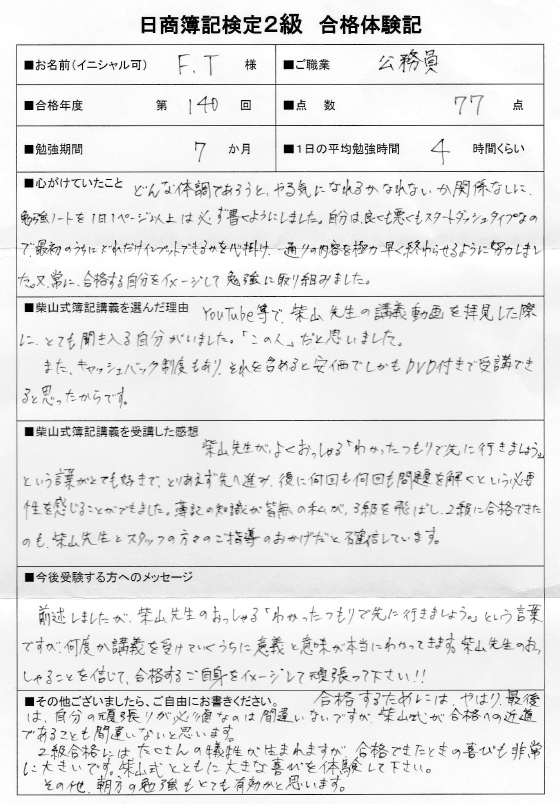 日商簿記検定2級 合格体験記
■お名前(イニシャル可) F.T 様 ■ご職業 公務員
■合格年度 第 140 回 ■点 数 77 点
■勉強期間 7 か月 ■1日の平均勉強時間 4 時間くらい
■心がけていたこと どんな体調であろうと、やる気になれるかなれないか関係なしに、
勉強ノートを1日1ページ以上は必ず書くようにしました。自分は、良くも悪くもスタートダッシュタイプなの
で最初のうちにどれだけインプットできるかを心掛け、一通りの内容を極力早く終わらせるように努力しまし
た。又、常に、合格する自分をイメージして勉強に取り組みました。
■柴山式簿記講義を選んだ理由 YouTube等で、柴山先生の講義動画を拝見した際
に、とても聞き入る自分がいました。「この人」だと思いました。
また、キャッシュバック制度もあり、それを含めると安価でしかもDVD付きで受講でき
ると思ったからです。
■柴山式簿記講義を受講した感想
柴山先生が、よくおっしゃる「わかったつもりで先に行きましょう」
という言葉がとても好きで、とりあえず先へ進み、後に何回も何回も問題を解くという必要
性を感じることができました。簿記の知識が皆無の私が、3級を飛ばし、2級に合格できた
のも、柴山先生とスタッフの方々のご指導のおかげだと確信しています。
■今後受験する方へのメッセージ
前述しましたが、柴山先生のおっしゃる「わかったつもりで先に行きましょう。」という言葉
ですが、何度か講義を受けていくうちに意義と意味が本当にわかってきます。柴山先生のおっ
しゃることを信じて、合格するご自身をイメージして頑張って下さい!!
■その他ございましたら、ご自由にお書きください。 合格するためには、やはり、最後
は、自分の頑張りが必須なのは間違いないですが、柴山式が合格への近道
であることも間違いないと思います。
2級合格にはたくさんの犠牲が生まれますが、合格できたときの喜びも非常
に大きいです。柴山式とともに大きな喜びを体験して下さい。
その他、朝方の勉強もとても有効かと思います。